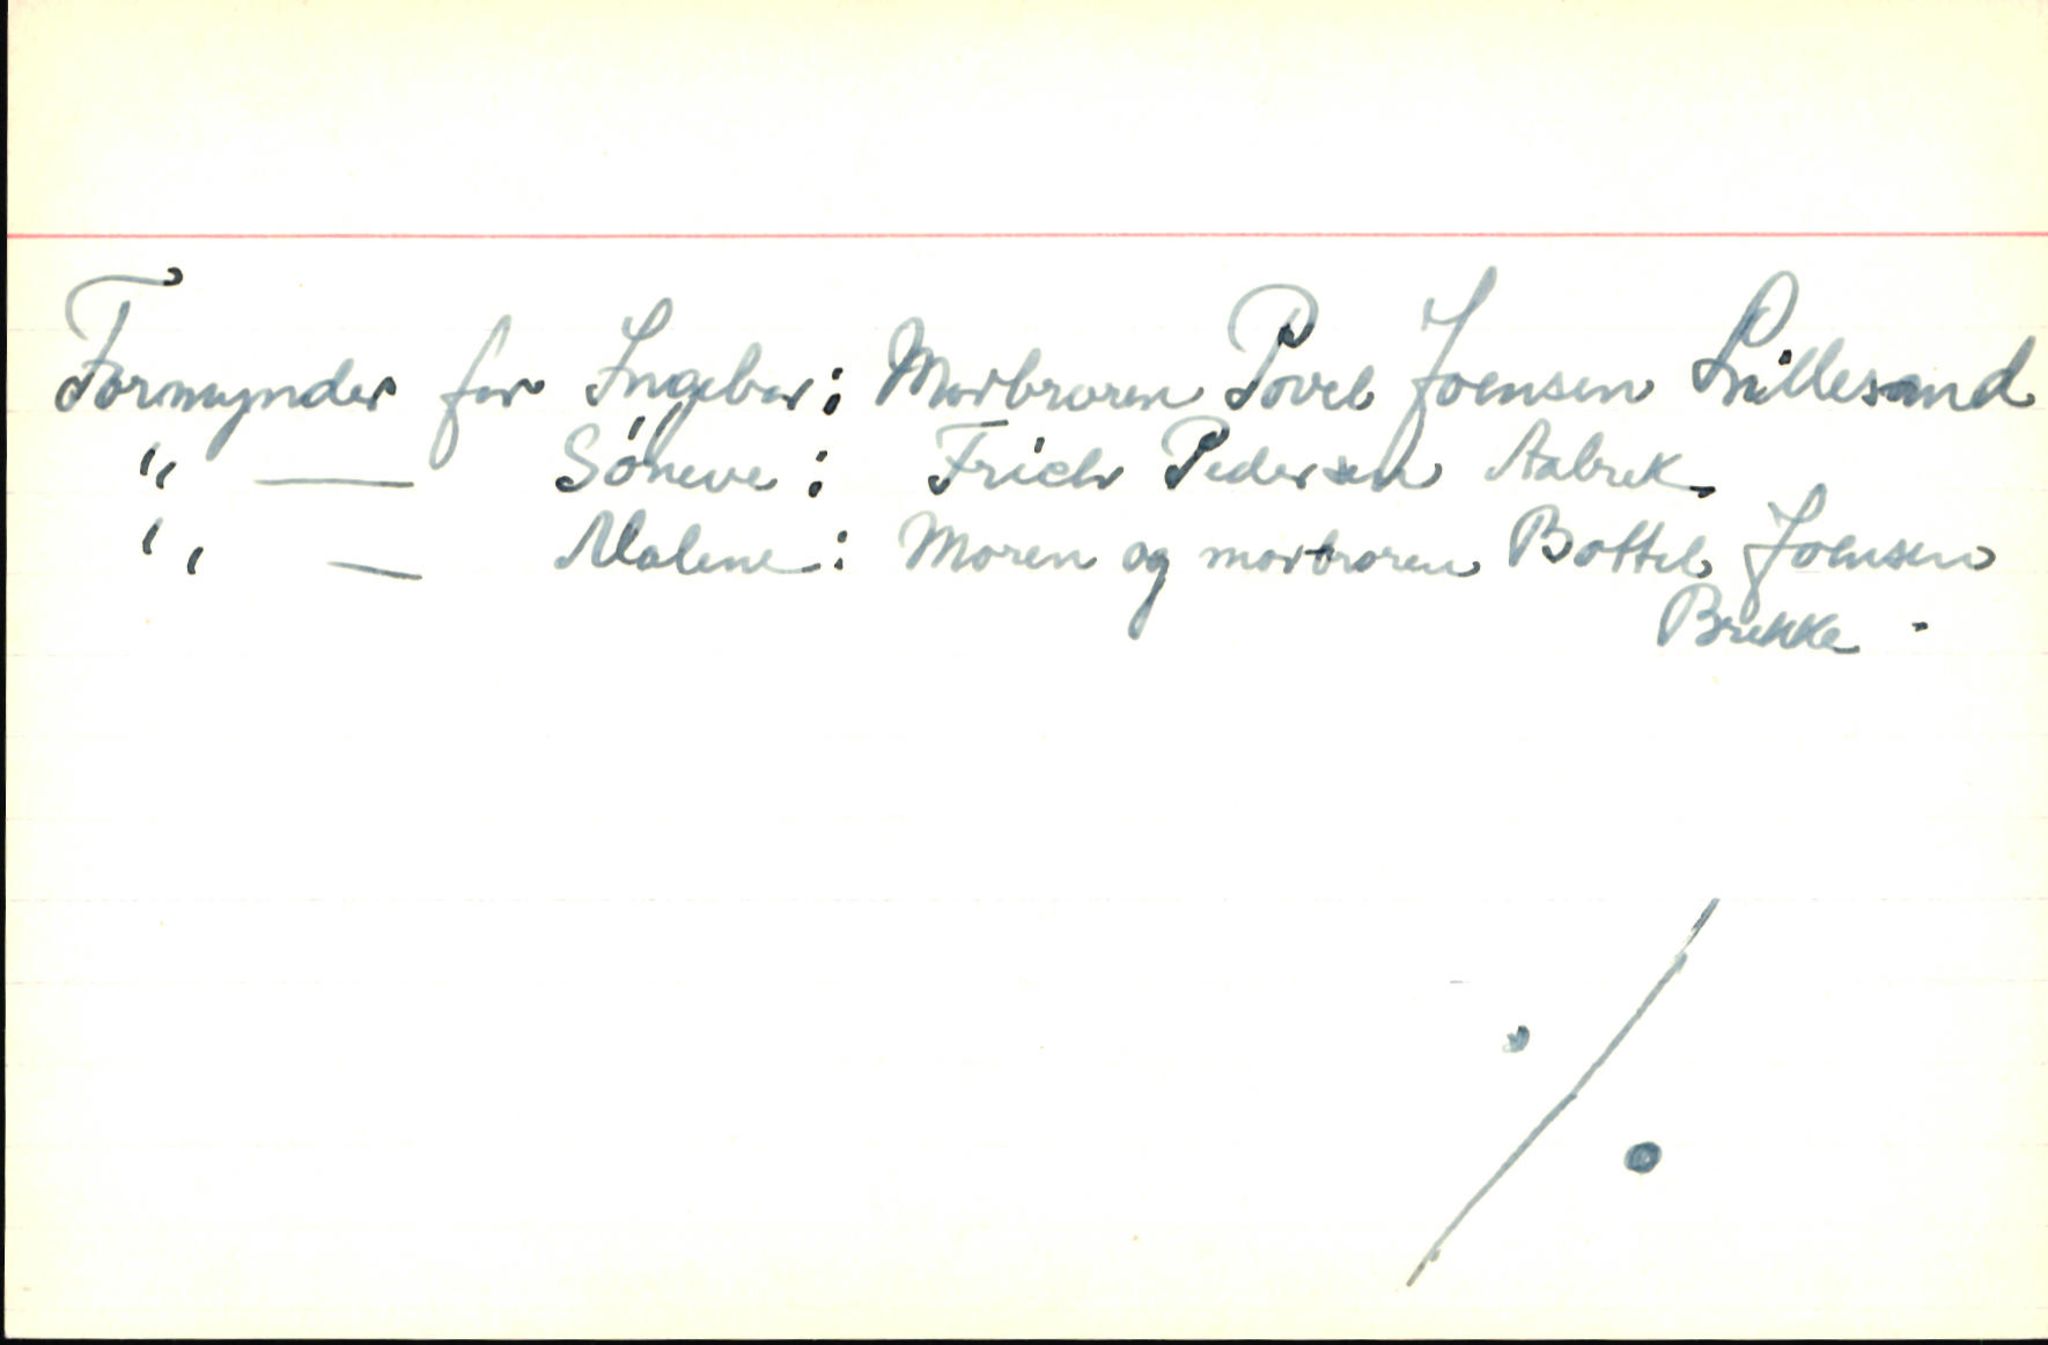 Formynder for Ingebor: Morbroren Povel Joensen Lillesand
" — Söneve: Frich Pedersen Aabrek.
" — Malene: Moren og morbroren Bottel Joensen
Brekke.
./.